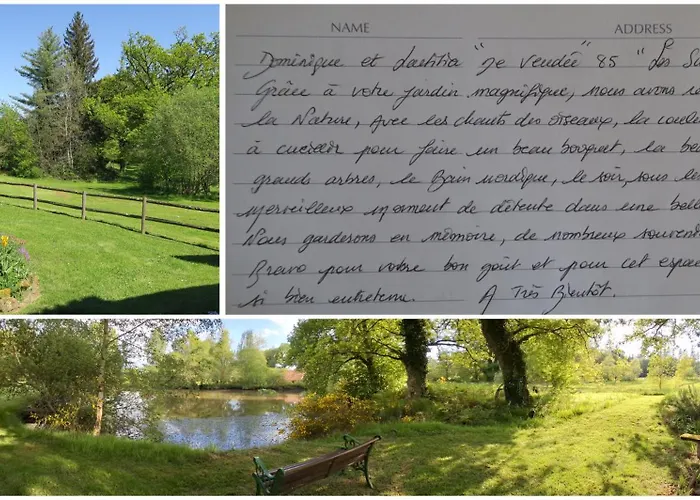 NAME ADDRESS
Dominique et Laetitia "Je Vendée" 85 "Les
Grâce à votre jardin magnifique, nous avons
la Nature, avec les chants des oiseaux, la
à cueillir pour faire un beau bouquet, la
grands arbres, le Bain nordique, le soir, sous
merveilleux moment de détente dans une
Nous garderons en mémoire, de nombreux
Bravo pour votre bon goût et pour cet
si bien entretenu. A Très Bientôt.